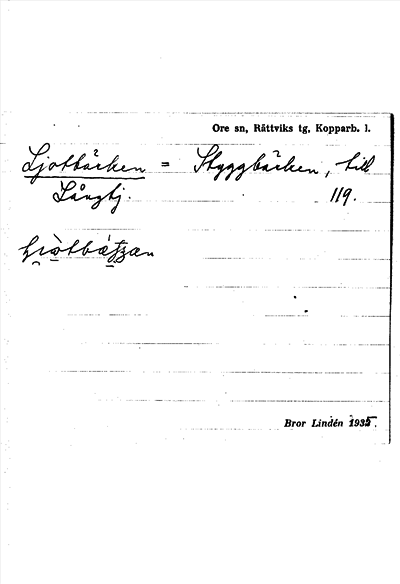 Ore sn, Rättviks tg, Kopparb. l.
Ljotbäcken = Styggbäcken, till
Långtj. 119.
Bror Lindén 1935.